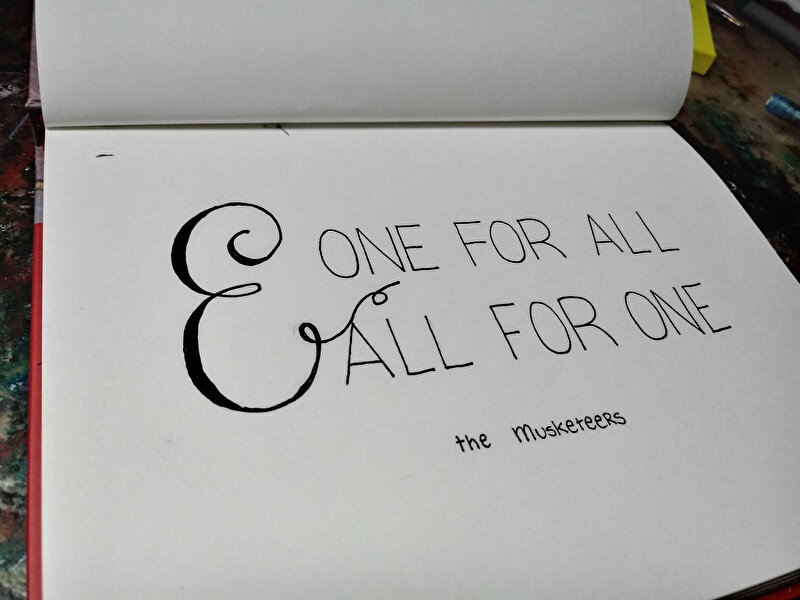 & ONE FOR ALL
ALL FOR ONE
the musketeers